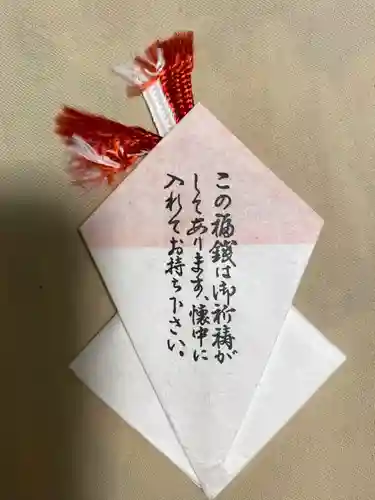 この福鎖は御祈祷が
してあります、懐中に
入れてお持ち下さい。